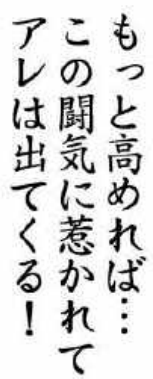 もっと高めれば…
この闘気に惹かれて
アレは出てくる！